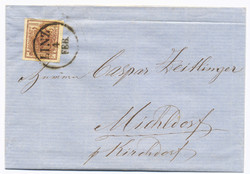 LINZ
4
FEB.
Herrn Caspar Zeitlinger
Michldorf
p Kirchdorf